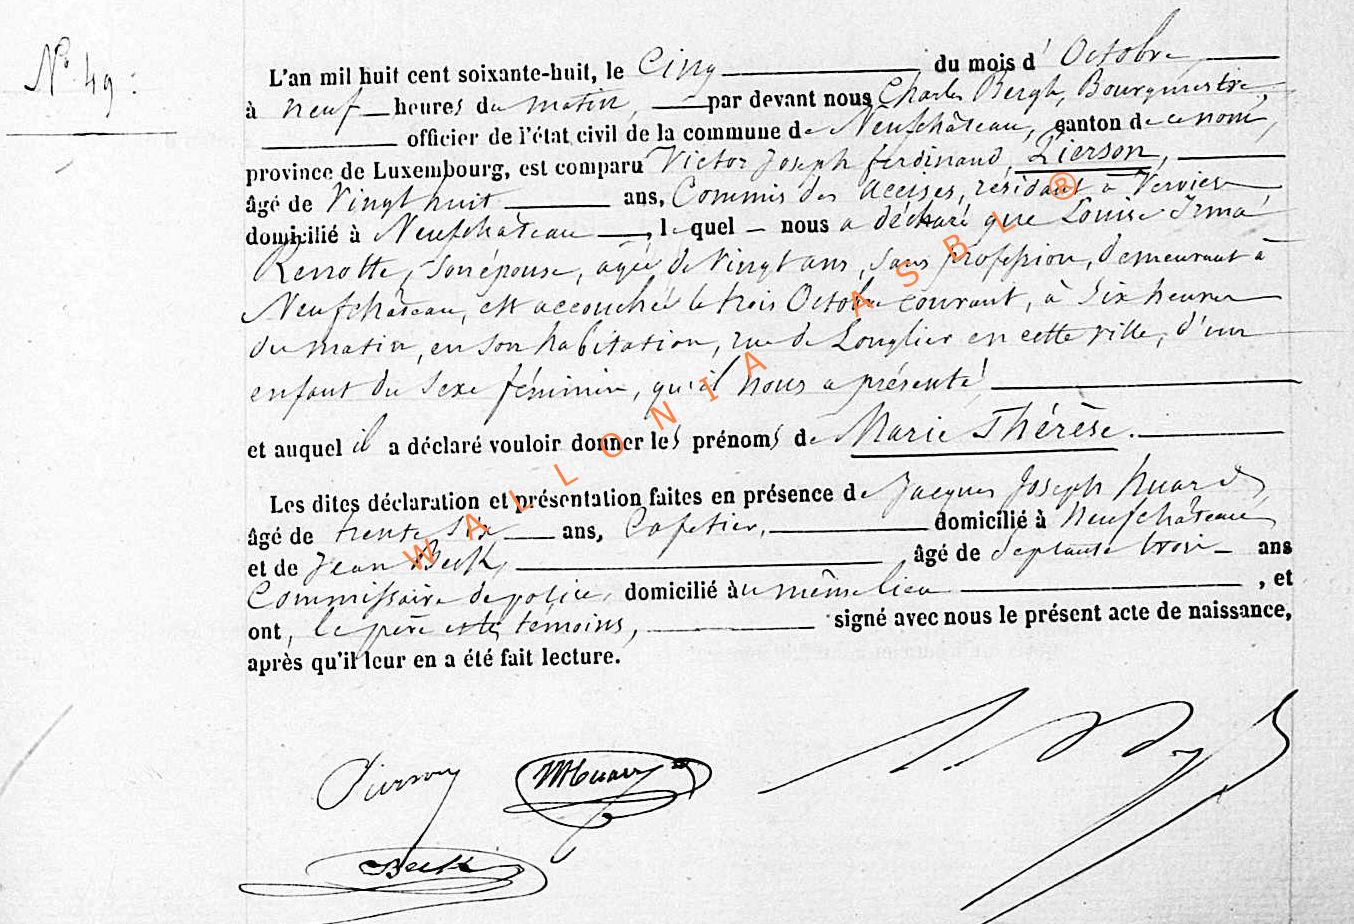 N° 49 :
L'an mil huit cent soixante-huit, le Cinq du mois d' Octobre,
à neuf heures du matin, par devant nous Charles Bergh, Bourgmestre,
officier de l'état civil de la commune de Neufchâteau, canton de ce nom,
province de Luxembourg, est comparu Victor Joseph ferdinand Pierson,
âgé de Vingt huit ans, Commis des accises, résidant à Vervier
domicilié à Neufchâteau, lequel nous a déclaré que Louise Irma
Renotte, son épouse, agée de Vingt ans, sans profession, demeurant à
Neufchâteau, est accouchée le trois Octobre courant, à Six heures
du matin, en son habitation, rue de Longlier en cette ville, d'un
enfant du sexe féminin, qu'il nous a présenté
et auquel il a déclaré vouloir donner les prénoms de Marie Thérèse.
Les dites déclaration et présentation faites en présence de Jacques Joseph huard,
âgé de trente six ans, Cafetier, domicilié à Neufchâteau
et de Jean Beck, âgé de Septante trois ans
Commissaire de police, domicilié au même lieu, et
ont, le père et les témoins, signé avec nous le présent acte de naissance,
après qu'il leur en a été fait lecture.
Pierson
Huard
Beck
WALLONIA ASBL ®